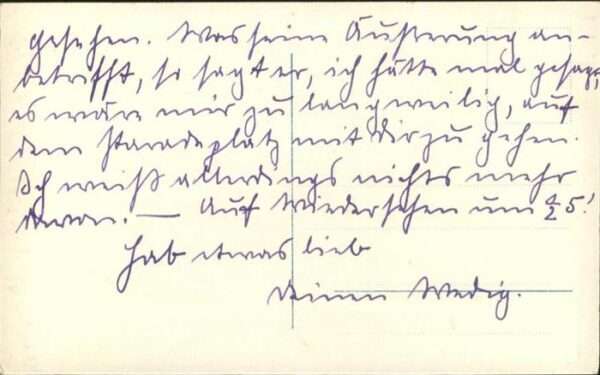 gesehen. Was seine Äußerung an-
betrifft, so sagt er, ich hätte mal gesagt,
es wäre mir zu langweilig, auf
dem Paradeplatz mit Dir zu gehen.
Ich weiß allerdings nichts mehr
davon. — Auf Wiedersehen um 1/2 5!
Hab etwas lieb
Deinen Wedig.